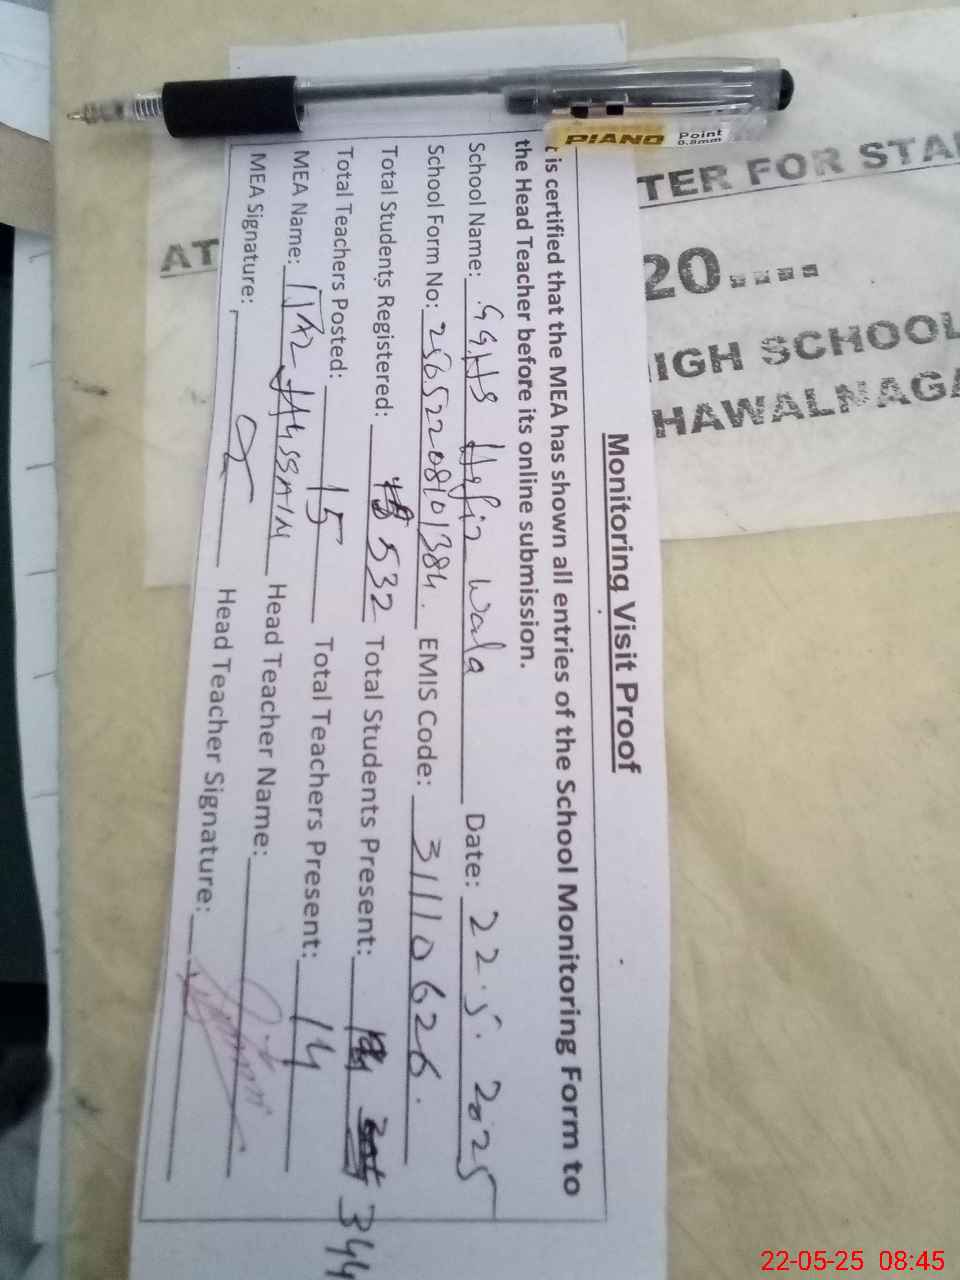 Monitoring Visit Proof
t is certified that the MEA has shown all entries of the School Monitoring Form to
the Head Teacher before its online submission.
School Name: GGHS Hafiz Wala Date: 22.5.2025
School Form No: 25652208101384. EMIS Code: 31110626.
Total Students Registered: 532 Total Students Present: 344
Total Teachers Posted: 15 Total Teachers Present: 14
MEA Name: IJAZ HUSSAIN Head Teacher Name:
MEA Signature: Head Teacher Signature:
PIANO Point
0.8mm
TER FOR STA
AT 20....
IGH SCHOOL
HAWALNAGA
22-05-25 08:45